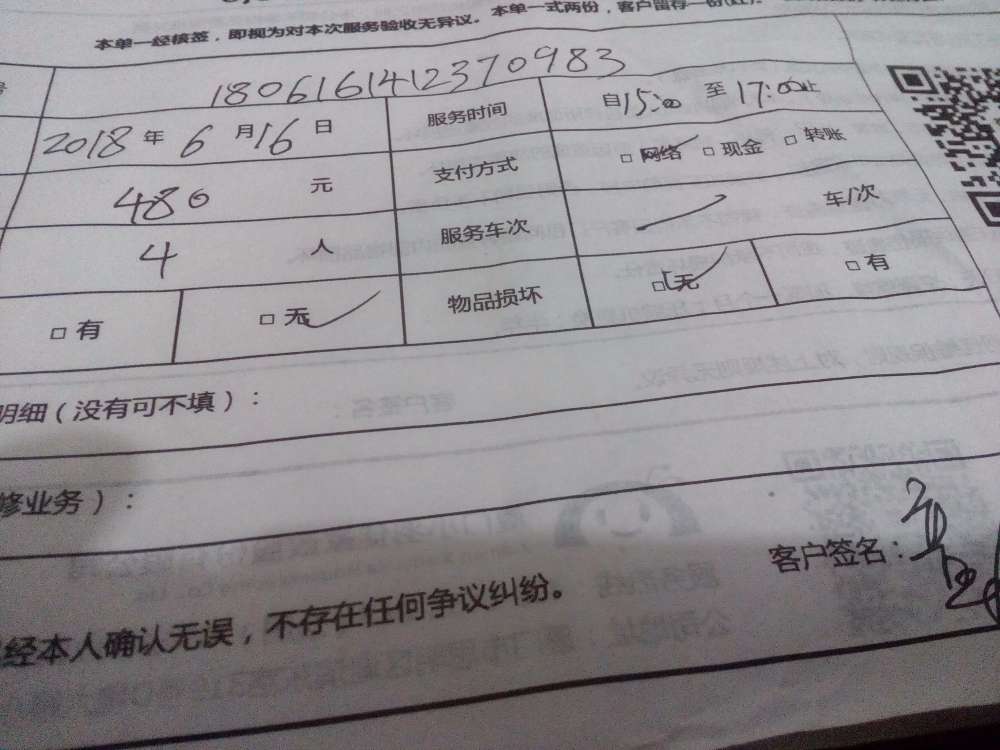 本单一经核签，即视为对本次服务验收无异议。本单一式两份，客户留存一份(红)。
1806161412370983
2018 年 6 月 16 日 服务时间 自 15:00 至 17:00 止
480 元 支付方式 □ 网络 □ 现金 □ 转账
4 人 服务车次 车/次
□ 有 □ 无 物品损坏 □ 无 □ 有
明细（没有可不填）：
修业务）：
客户签名：
经本人确认无误，不存在任何争议纠纷。